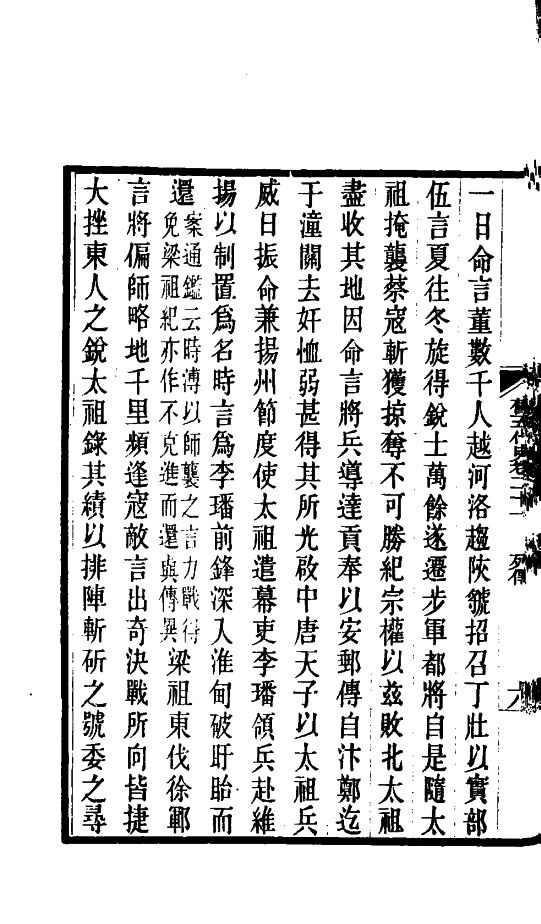 一日命言董數千人越河洛趨陝虢招召丁壯以實部
伍言夏往冬旋得銳士萬餘遂遷步軍都將自是隨太
祖掩襲蔡寇斬獲掠奪不可勝紀宗權以茲敗北太祖
盡收其地因命言將兵導達貢奉以安郵傳自汴鄭迄
于潼關去奸恤弱甚得其所光啟中唐天子以太祖兵
威日振命兼揚州節度使太祖遣幕吏李璠領兵赴維
揚以制置爲名時言爲李璠前鋒深入淮甸破盱眙而
還
案通鑑云時溥以師襲之言力戰得
免梁祖紀亦作不克進而還與傳異
梁祖東伐徐鄆
言將偏師略地千里頻逢寇敵言出奇決戰所向皆捷
大挫東人之銳太祖錄其績以排陣斬斫之號委之尋
舊五代史卷二十一
列傳